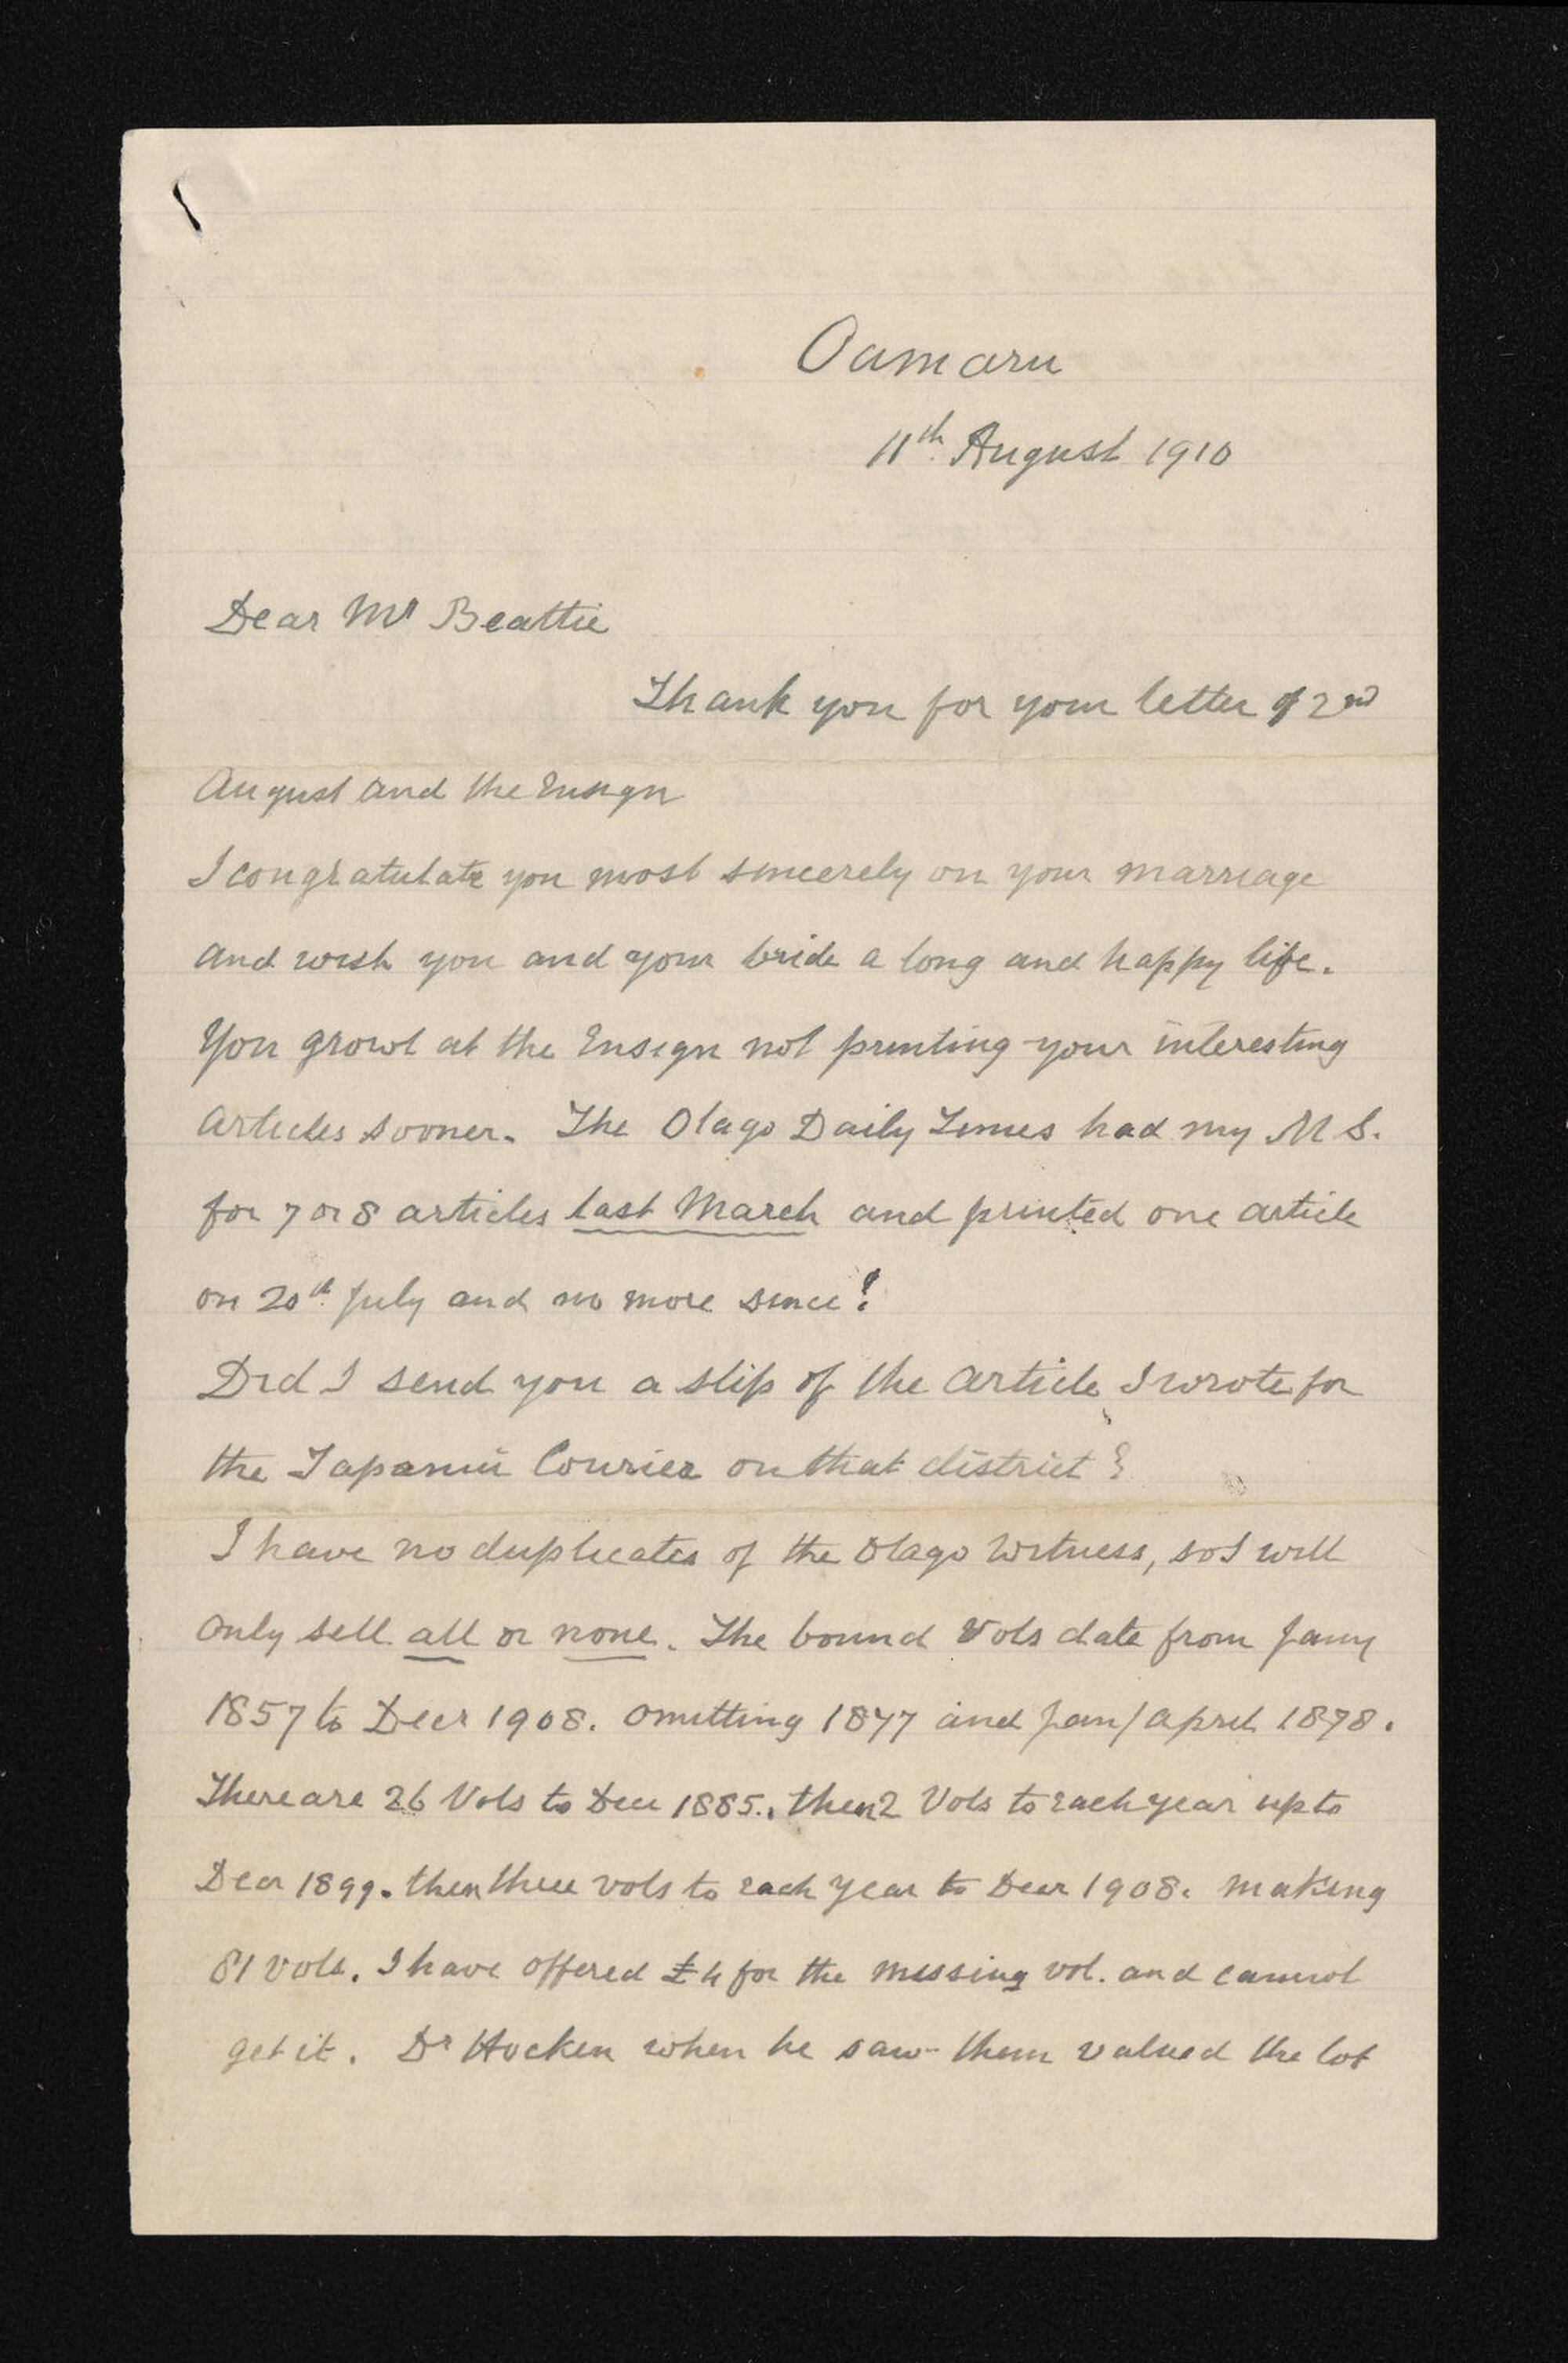 Oamaru
11th August 1910
Dear Mr Beattie
Thank you for your letter of 2nd
August and the Ensign
I congratulate you most sincerely on your marriage
and wish you and your bride a long and happy life.
You growl at the Ensign not printing your interesting
articles sooner. The Otago Daily Times had my M S.
for 7 or 8 articles last March and printed one article
on 20th July and no more since!
Did I send you a slip of the article I wrote for
the Tapanui Courier on that district?
I have no duplicates of the Otago Witness, so I will
only sell all or none. The bound Vols date from Jany
1857 to Decr 1908. omitting 1877 and Jan/April 1878.
There are 26 Vols to Dec 1885., then 2 Vols to each year up to
Decr 1899. then three vols to each year to Decr 1908. making
81 vols. I have offered £4 for the missing vol. and cannot
get it. Dr Hocken when he saw them valued the lot